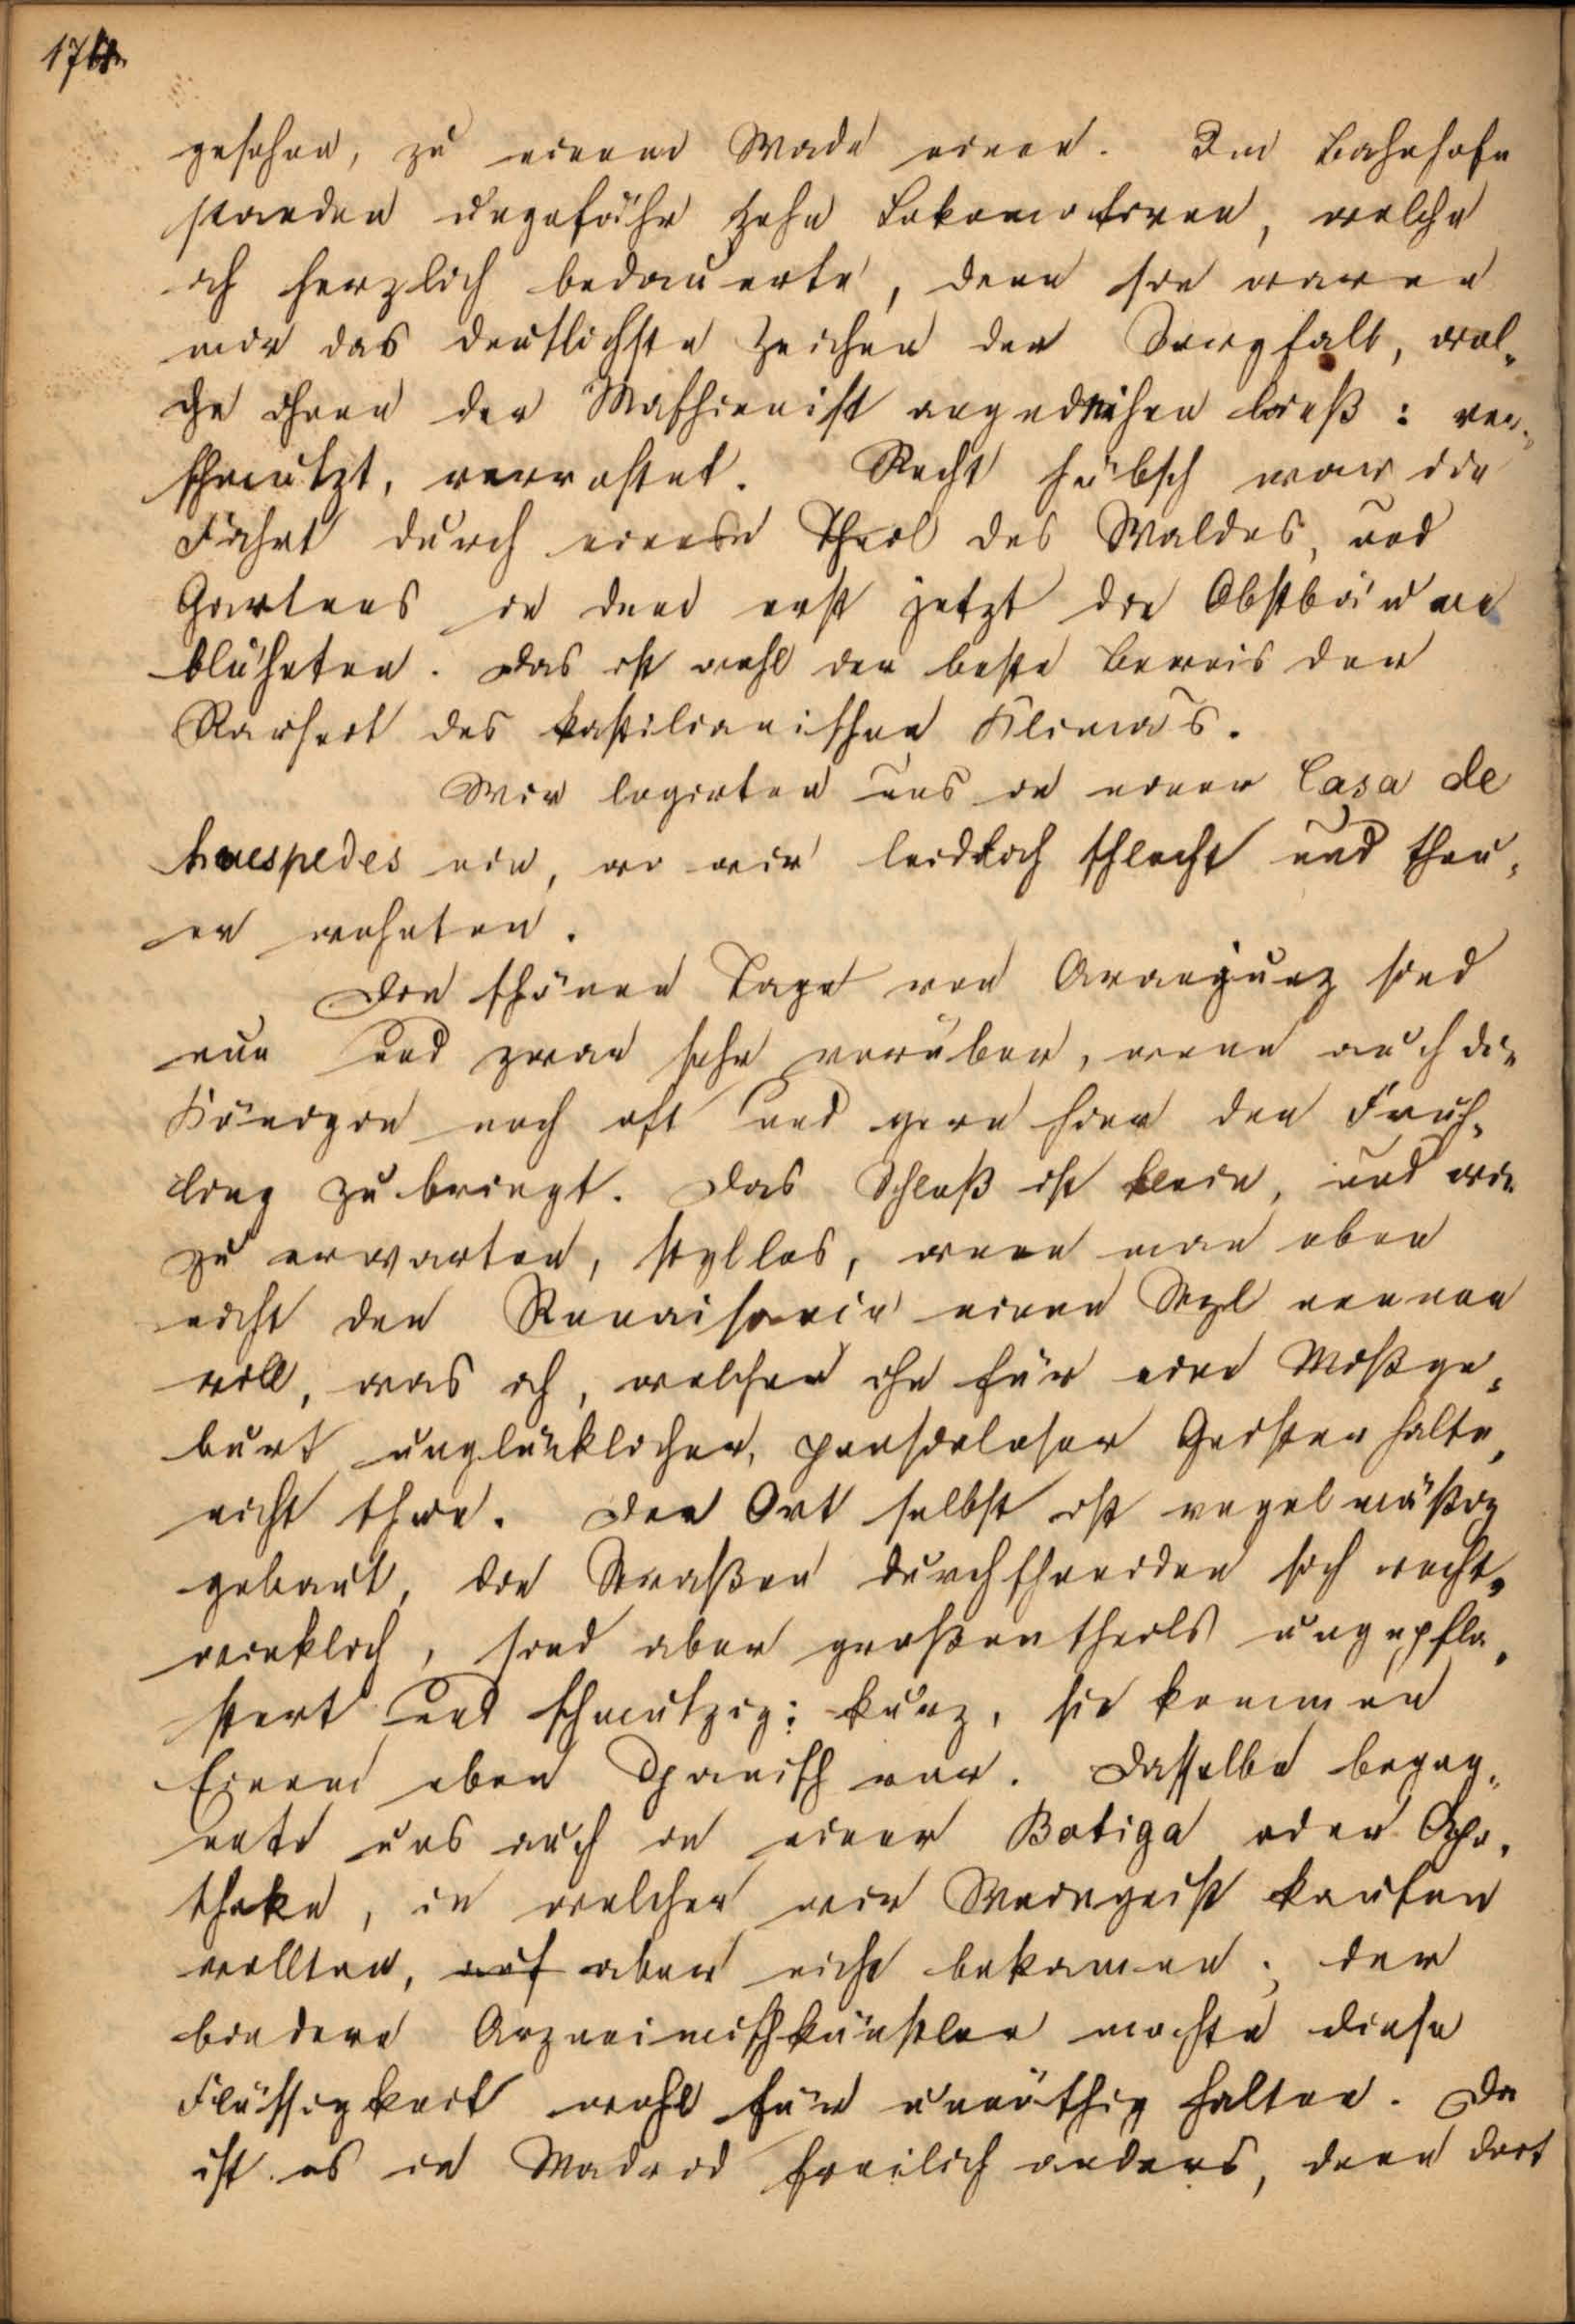 gesehen, zu einem Made einen. Im Bahnhofe
standen ungefähr zehn Lokomotiven, welche
ich herzlich bedauerte, denn sie waren
mir das deutlichste Zeichen der Sorgfalt, wel-
che ihnen der Maschienist angedeihen ließ: ver-
schmutzt, verrostet. Recht hübsch war die
Fahrt durch einen Theil des Waldes, und
Gartens in dem erst jetzt die Obstbäume
blüheten. Das ist wohl der beste Beweis der
Rauheit des kastilianischen Klima's.
Wir logirten uns in einer Casa de
huespedes ein, wo wir leidlich schlecht und theu-
er wohnten.
Die schönen Tage von Aranjuez sind
nun und zwar sehr vorüber, wenn auch die
Königin noch oft und gern hier den Früh-
ling zubringt. Das Schloß ist klein, und wie
zu erwarten, styllos, wenn man eben
nicht den Renaisancie einen Styl nennen
will, was ich, welcher ihn für eine Mißge-
burt unglücklicher, poesieloser Geister halte,
nicht thue. Der Ort selbst ist regelmäßig
gebaut, die Straßen durchschneiden sich recht-
winklich, sind aber großentheils ungepfla-
stert und schmutzig; kurz, sie kommen
Einem eben Spanisch vor. Dasselbe begeg-
nete uns auch in einer Botiga oder Apo-
theke, in welcher wir Weingeist kaufen
wollten, auf aber nicht bekamen; der
biedere Arzneimischkünstler mochte diese
Flüssigkeit wohl für unnöthig halten. Da
ist es in Madrid freilich anders, denn dort